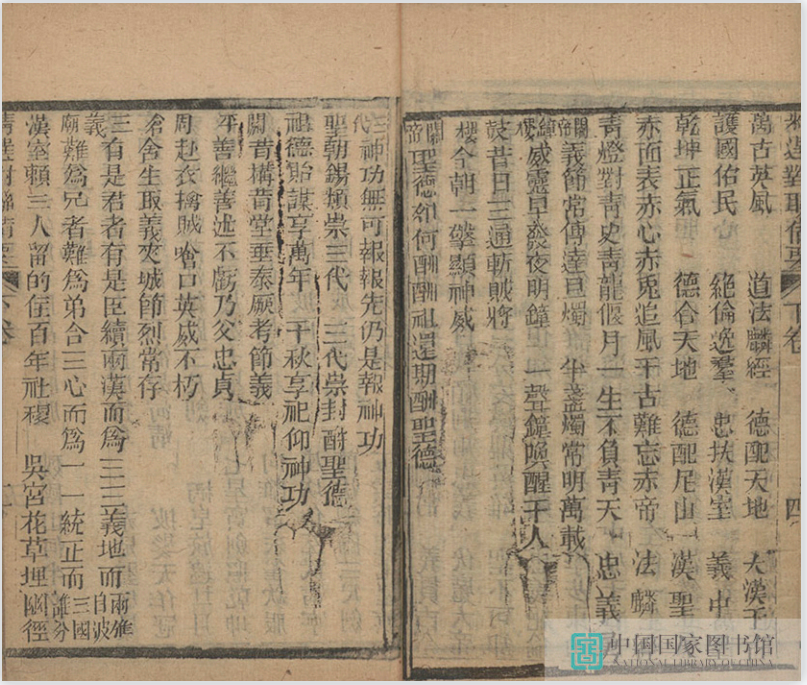 萬古英風　道法麟經　德配天地　大漢
護國佑民　絕倫逸羣　忠扶漢室　義
乾坤正氣　德合天地　德配尼山　漢聖
赤面表赤心赤兎追風千古難忘赤帝　法麟
青燈對青史青龍偃月一生不負青天　忠義
關帝義節常傳達旦燭　半盞燭常明萬載
鐘樓威靈早發夜明鐘　一聲鐘喚醒千人
鼓昔日三通斬賊將
樓今朝一擊顯神威
關帝聖德如何酬酬祖還期酬聖德
三代神功無可報報先仍是報神功
聖朝錫類崇三代　三代崇封酧聖德
祖德貽謀享萬年　千秋享祀仰神功
關昔構昔堂垂泰厥考節義
平善繼善述不虧乃父忠貞
周赴衣擒賊嗆口英威不朽
倉舍生取義夾城節烈常存
三義有是君者有是臣續兩漢而爲三三義地而
廟難爲兄者難爲弟合三心而爲一一統正而三國
漢室賴三人留的住百年社稷　吳宮花草埋幽徑
下卷
四
下卷
中国国家图书馆
NATIONAL LIBRARY OF CHINA